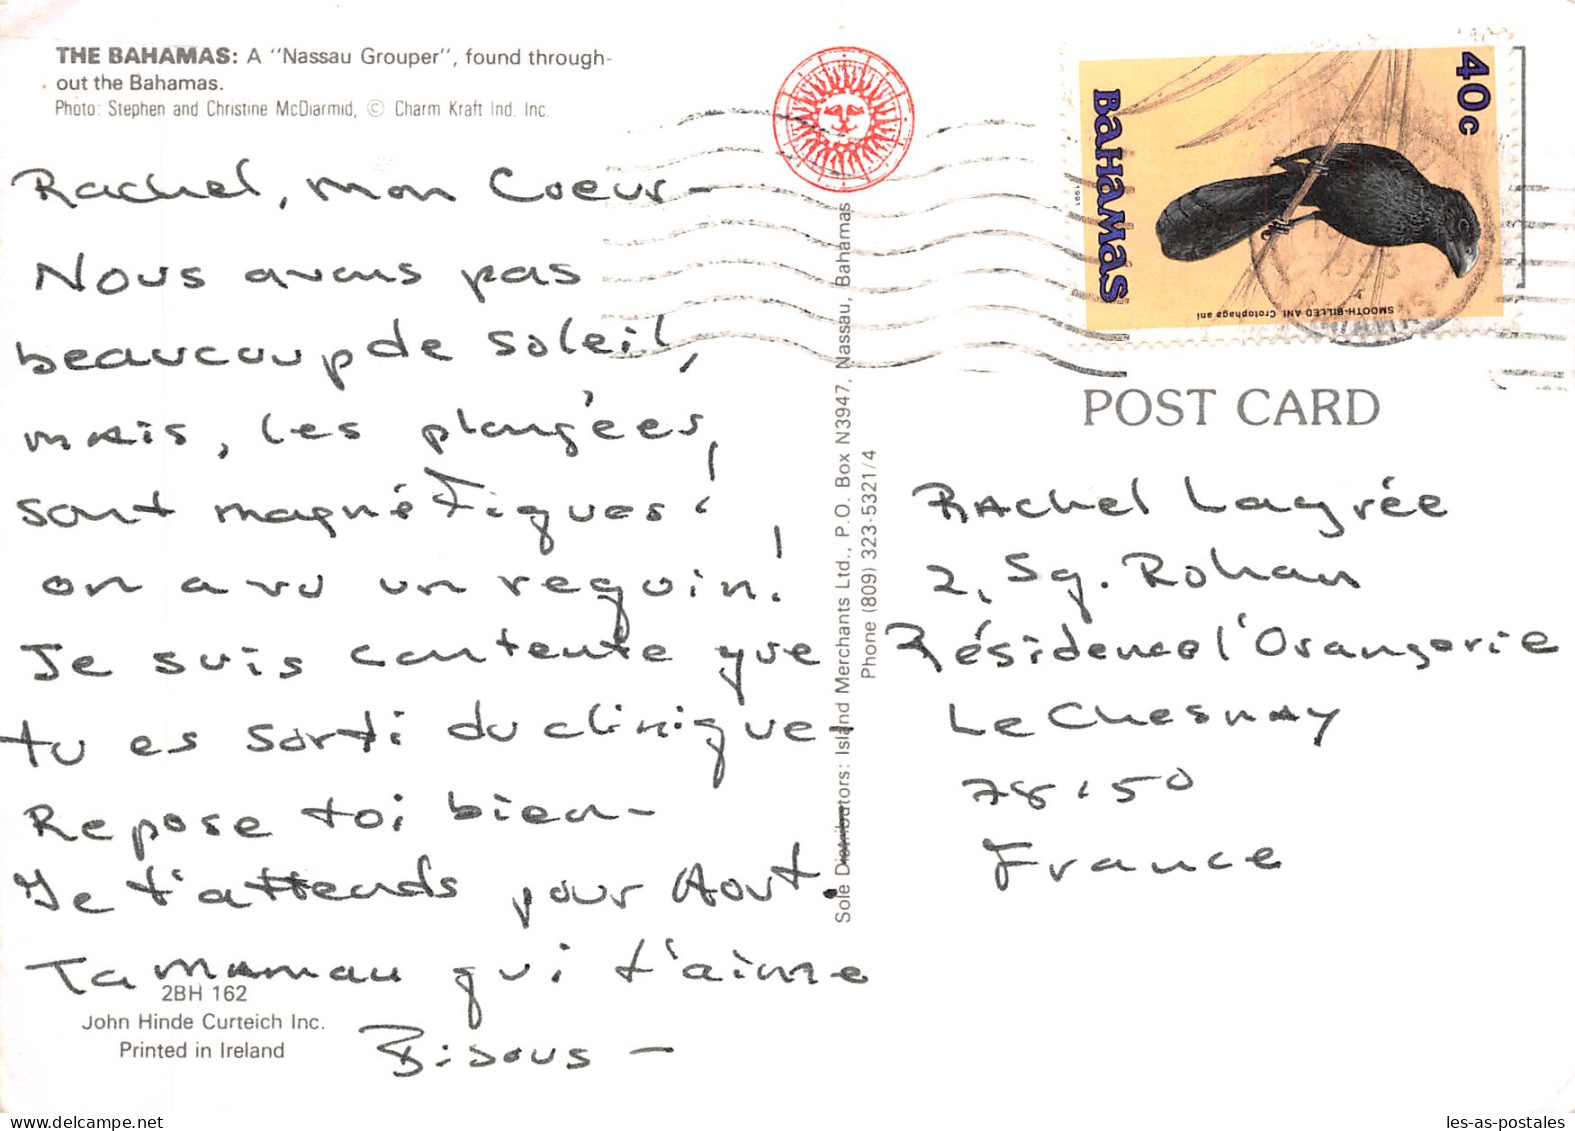 THE BAHAMAS: A "Nassau Grouper", found through-
out the Bahamas.
Photo: Stephen and Christine McDiarmid, © Charm Kraft Ind. Inc.
Rachel, mon Coeur -
Nous avons pas
beaucoup de soleil,
mais, les plongées,
sont magnétiques!
on a vu un requin!
Je suis contente que
tu es sorti du clinique.
Repose toi bien -
Je t'attends pour Aout.
Ta maman qui t'aime
Bisous -
2BH 162
John Hinde Curteich Inc.
Printed in Ireland
Sole Distributors: Island Merchants Ltd., P.O. Box N3947, Nassau, Bahamas
Phone (809) 323-5321/4
40c
BAHAMAS
1991
SMOOTH-BILLED ANI Crotophaga ani
POST CARD
Rachel Lagrée
2, Sq. Rohan
Résidence l'Orangerie
Le Chesnay
78150
France
delcampe.net
les-as-postales